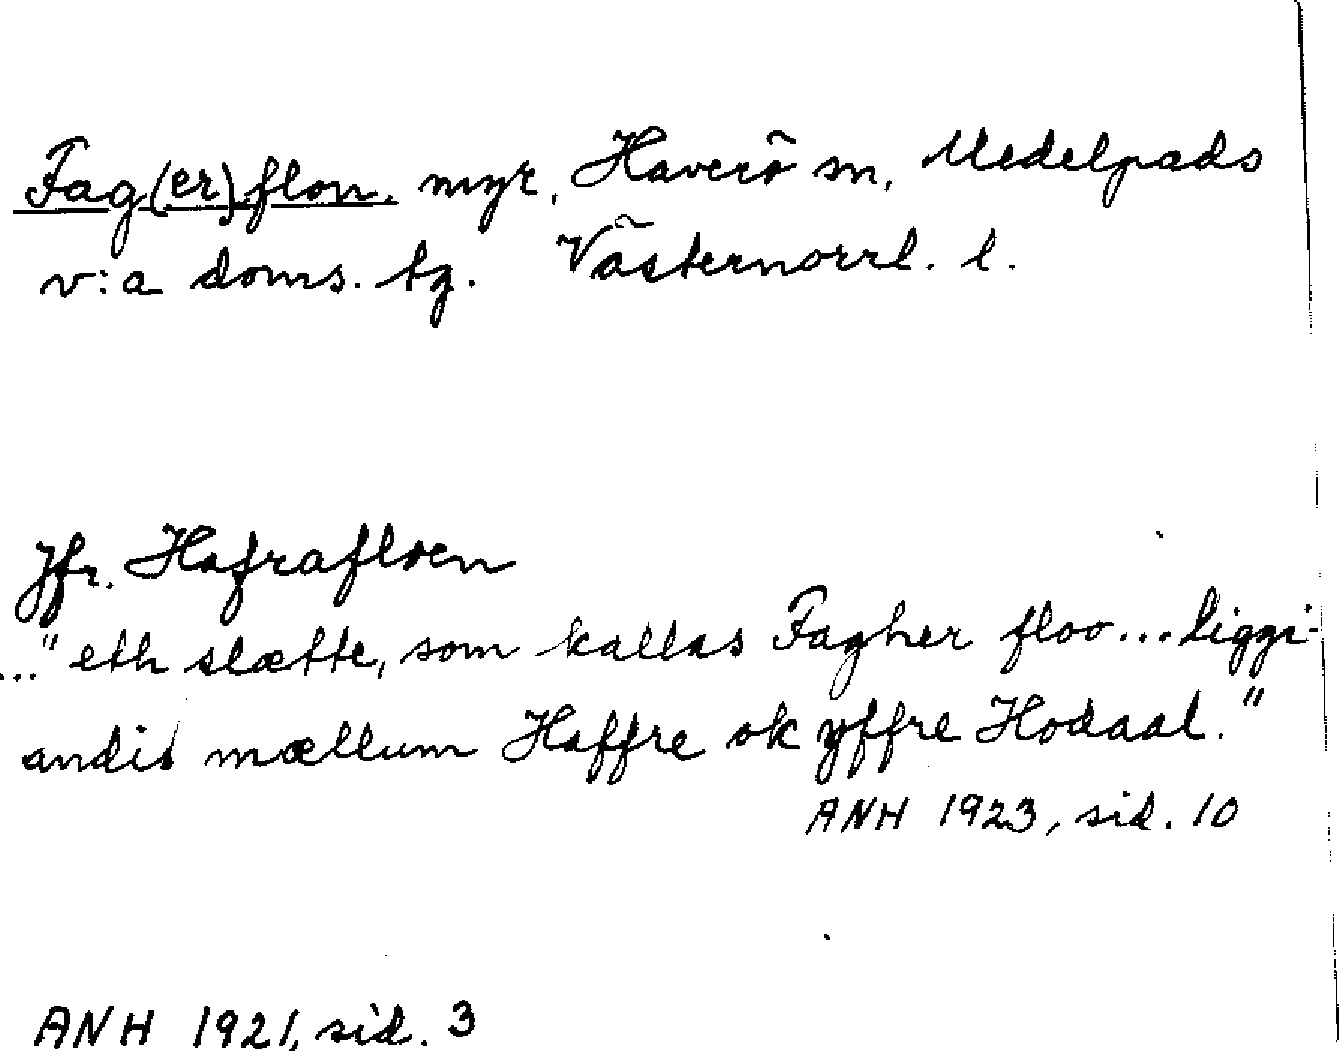 Fag(er)flon. myr, Haverö sn, Medelpads
v:a doms. tg. Västernorrl. l.
Jfr. Hafrafloen
..."eth slætte, som kallas Fagher floo... liggi-
andis mællum Haffre ok yffre Hodaal."
ANH 1923, sid. 10
ANH 1921, sid. 3